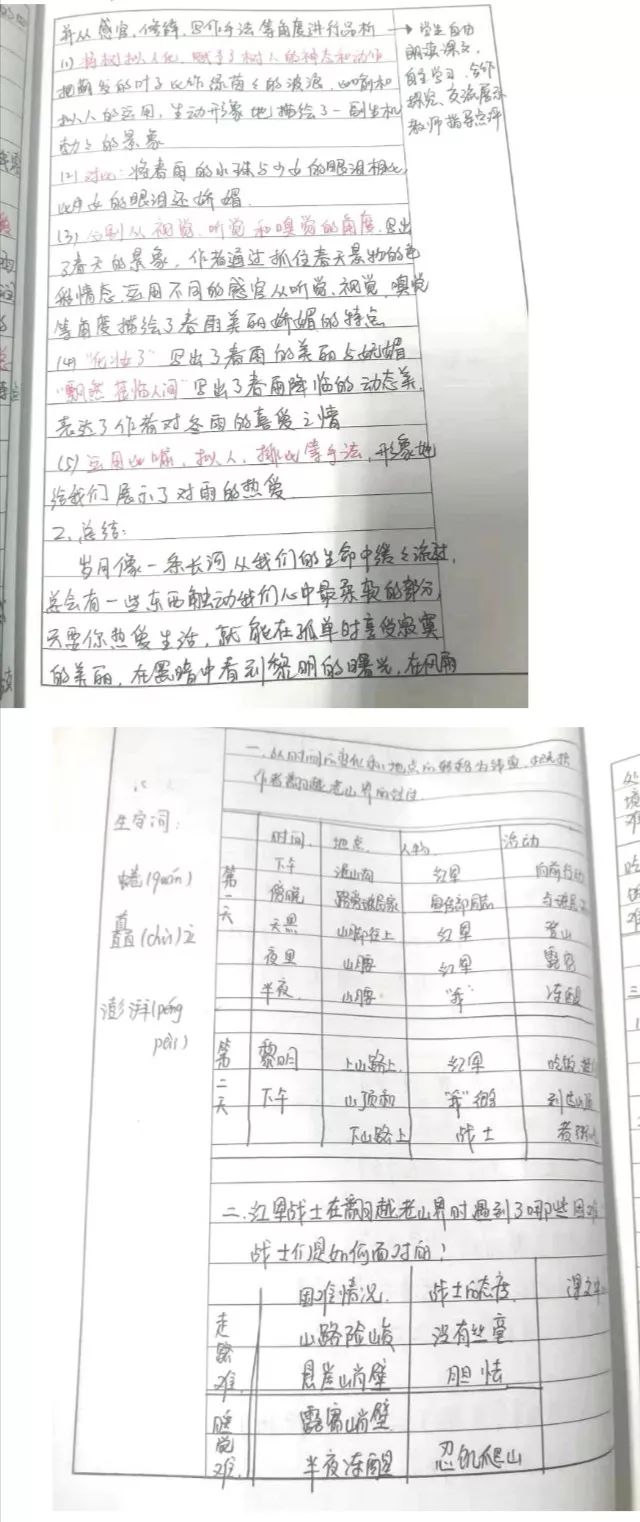 并从感官、修辞、写作手法等角度进行品析
(1) 将树拟人化，赋予了树人的神态和动作
把萌发的叶子比作绿茵茵的波浪，比喻和
拟人的运用，生动形象地描绘了一副生机
动之的景象
(2) 对比：将春雨的水珠与少女的眼泪相比，
比少女的眼泪还娇媚
(3) 分别从视觉、听觉和嗅觉的角度，写出
了春天的景象，作者通过抓住春天景物的色
彩情态，运用不同的感官从听觉、视觉、嗅觉
等角度描绘了春雨美丽娇媚的特点
(4) "化妆了"写出了春雨的美丽与妩媚
"飘然莅临人间"写出了春雨降临的动态美，
表达了作者对冬雨的喜爱之情
(5) 运用比喻、拟人、排比等手法，形象地
给我们展示了对雨的热爱
2、总结：
岁月像一条长河从我们的生命中缓缓流过，
总会有一些东西触动我们心中最柔软的部分，
只要你热爱生活，就能在孤单时享受寂寞
的美丽，在黑暗中看到黎明的曙光，在风雨
→学生自由
朗读课文，
自主学习、合作
探究、交流展示
教师指导点评
一、从时间的变化和地点的转移为线索，
作者翻越老山界的经过
生字词：
蜷(quán)
矗(chù)立
澎湃(péng
pài)
时间 地点 人物 活动
第一天
下午 红军 向前行动
傍晚 路旁瑶民家
天黑 山脚往上 红军 登山
夜里 山腰 红军 露宿
半夜 山腰 "我" 冻醒
第二天
黎明 上山路上 红军 吃饭
下午 山顶和 "我"
下山路上 战士
二、红军战士在翻越老山界时遇到了哪些困难
战士们是如何面对的？
困难情况 战士的态度 课文中
走路难
山路险峻 没有丝毫
悬崖峭壁 胆怯
睡觉难
露宿峭壁
半夜冻醒 忍饥爬山